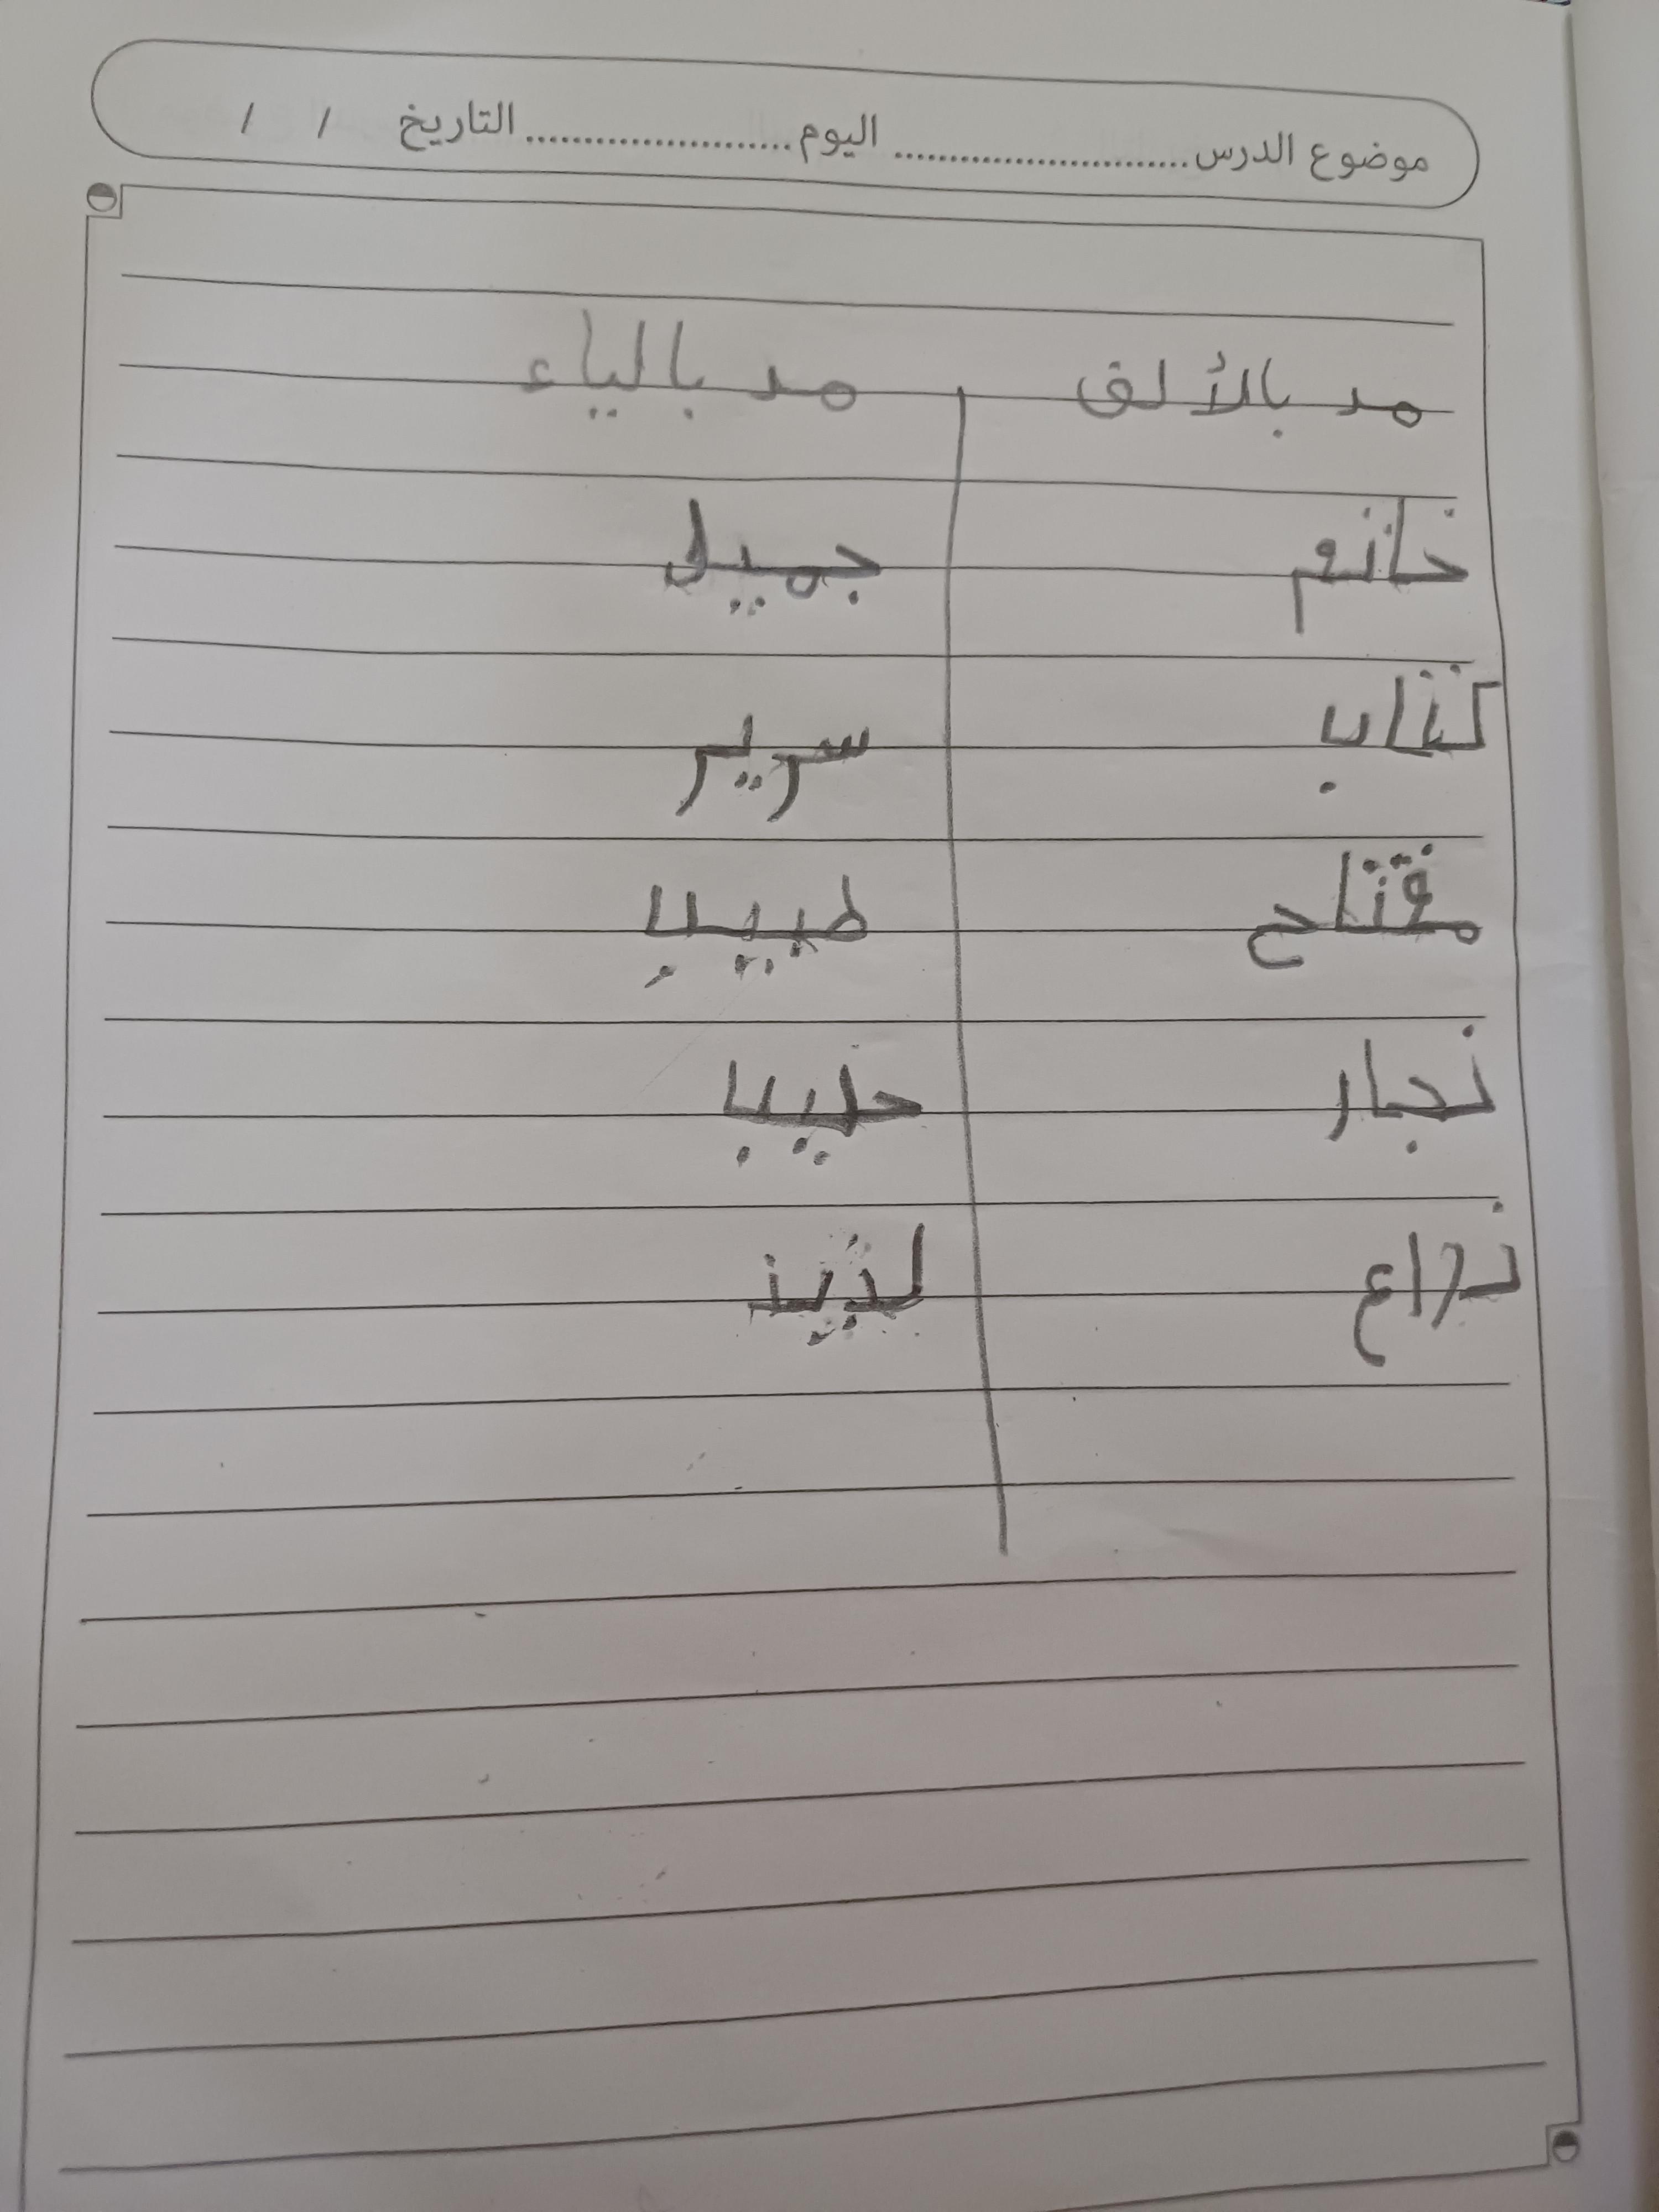 موضوع الدرس .................... اليوم .................... التاريخ / /
مد بالألف مد بالياء
خاتم جميل
كتاب سرير
مفتاح طبيب
نجار حليب
ذراع لذيذ